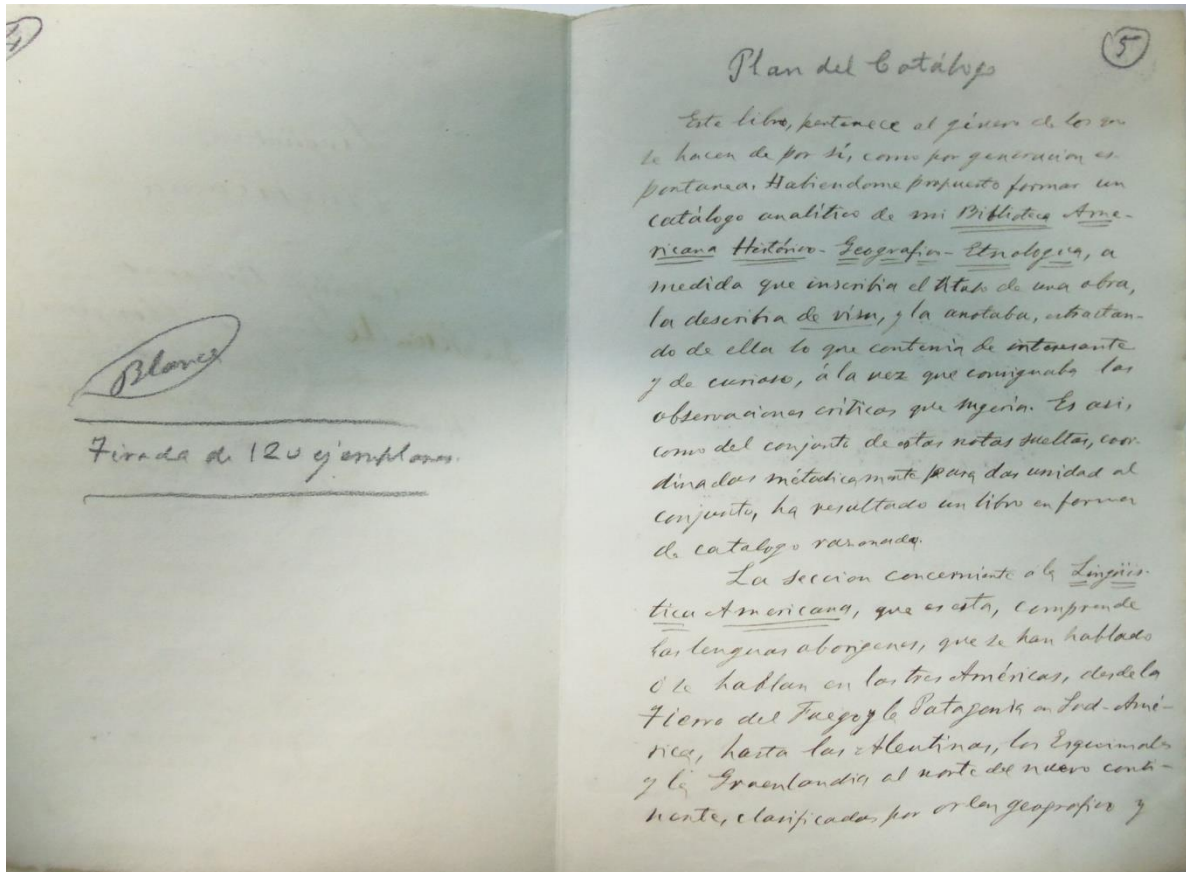 4
Blanco
Tirada de 120 ejemplares.
5
Plan del Catálogo
Este libro, pertenece al género de los que
se hacen de por sí, como por generacion es-
pontanea. Habiendome propuesto formar un
catálogo analítico de mi Biblioteca Ame-
ricana Histórico-Geografico-Etnologica, a
medida que inscribia el titulo de una obra,
la describia de visu, y la anotaba, extractan-
do de ella lo que contenia de interesante
y de curioso, á la vez que consignaba las
observaciones críticas que sugeria. Es asi,
como del conjunto de estas notas sueltas, coor-
dinadas métodicamente para dar unidad al
conjunto, ha resultado un libro en forma
de catalogo razonado.
La seccion concerniente á la Lingüis-
tica Americana, que es esta, comprende
las lenguas aborigenes, que se han hablado
ó se hablan en las tres Américas, desde la
Tierra del Fuego y la Patagonia en Sud-Amé-
rica, hasta las Aleutinas, los Esquimales
y la Groenlandia al norte del nuevo conti-
nente, clasificadas por orden geografico y